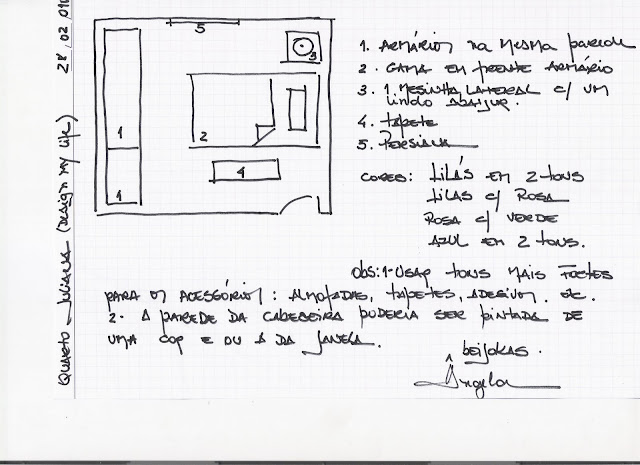 5
3
1
2
4
1
1. ARMÁRIOS NA MESMA PAREDE
2. CAMA EM FRENTE ARMÁRIO
3. 1 MESINHA LATERAL C/ UM
LINDO ABAJUR.
4. TAPETE
5. PERSIANA
CORES: LILÁS EM 2 TONS
LILAS C/ ROSA
ROSA C/ VERDE
AZUL EM 2 TONS.
OBS: 1- USAR TONS MAIS FORTES
PARA OS ACESSÓRIOS: ALMOFADAS, TAPETES, ADESIVOS. ETC.
2. A PAREDE DA CABECEIRA PODERIA SER PINTADA DE
UMA COR E OU A DA JANELA.
BEIJOKAS.
Ângela
QUARTO JULIANA (DESIGN MY LIFE) 28.02.010